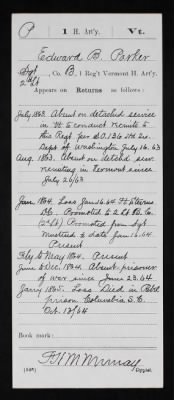 P 1 H. Art'y. Vt.
Edward B. Parker
Sgt 2d Lt, Co. B, 1 Reg't Vermont H. Art'y.
Appears on Returns as follows:
July 1863. Absent on detached service
in Vt to conduct recruits to
this Regt per S.O. 136 Hd. Qs.
Dept of Washington July 16. 63
Aug. 1863. Absent on detchd serv.
recruiting in Vermont since
July 26/63
Jan. 1864. Loss Jan 16. 64 Ft Stevens
D.C. Promoted to 2 Lt B Co.
(2d Lt) Promoted from Sgt
Mustered to date Jan 16. 64.
Present
Feby to May 1864. Present
June to Dec. 1864. Absent prisoner
of war since June 23. 64
Jany 1865. Loss Died in Rebel
prison Columbia S. C.
Oct. 13/64
Book mark:
Copyist.